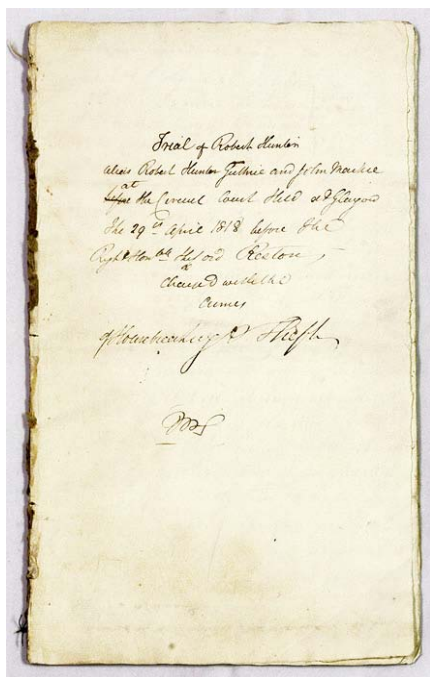 Trial of Robert Hunter
alias Robert Hunter Guthrie and John Mackie
before at the Circuit Court Held at Glasgow
The 29th April 1818 before the
Right Honble the Lord Reston
Charged with the
Crimes
of Housebreaking & Theft